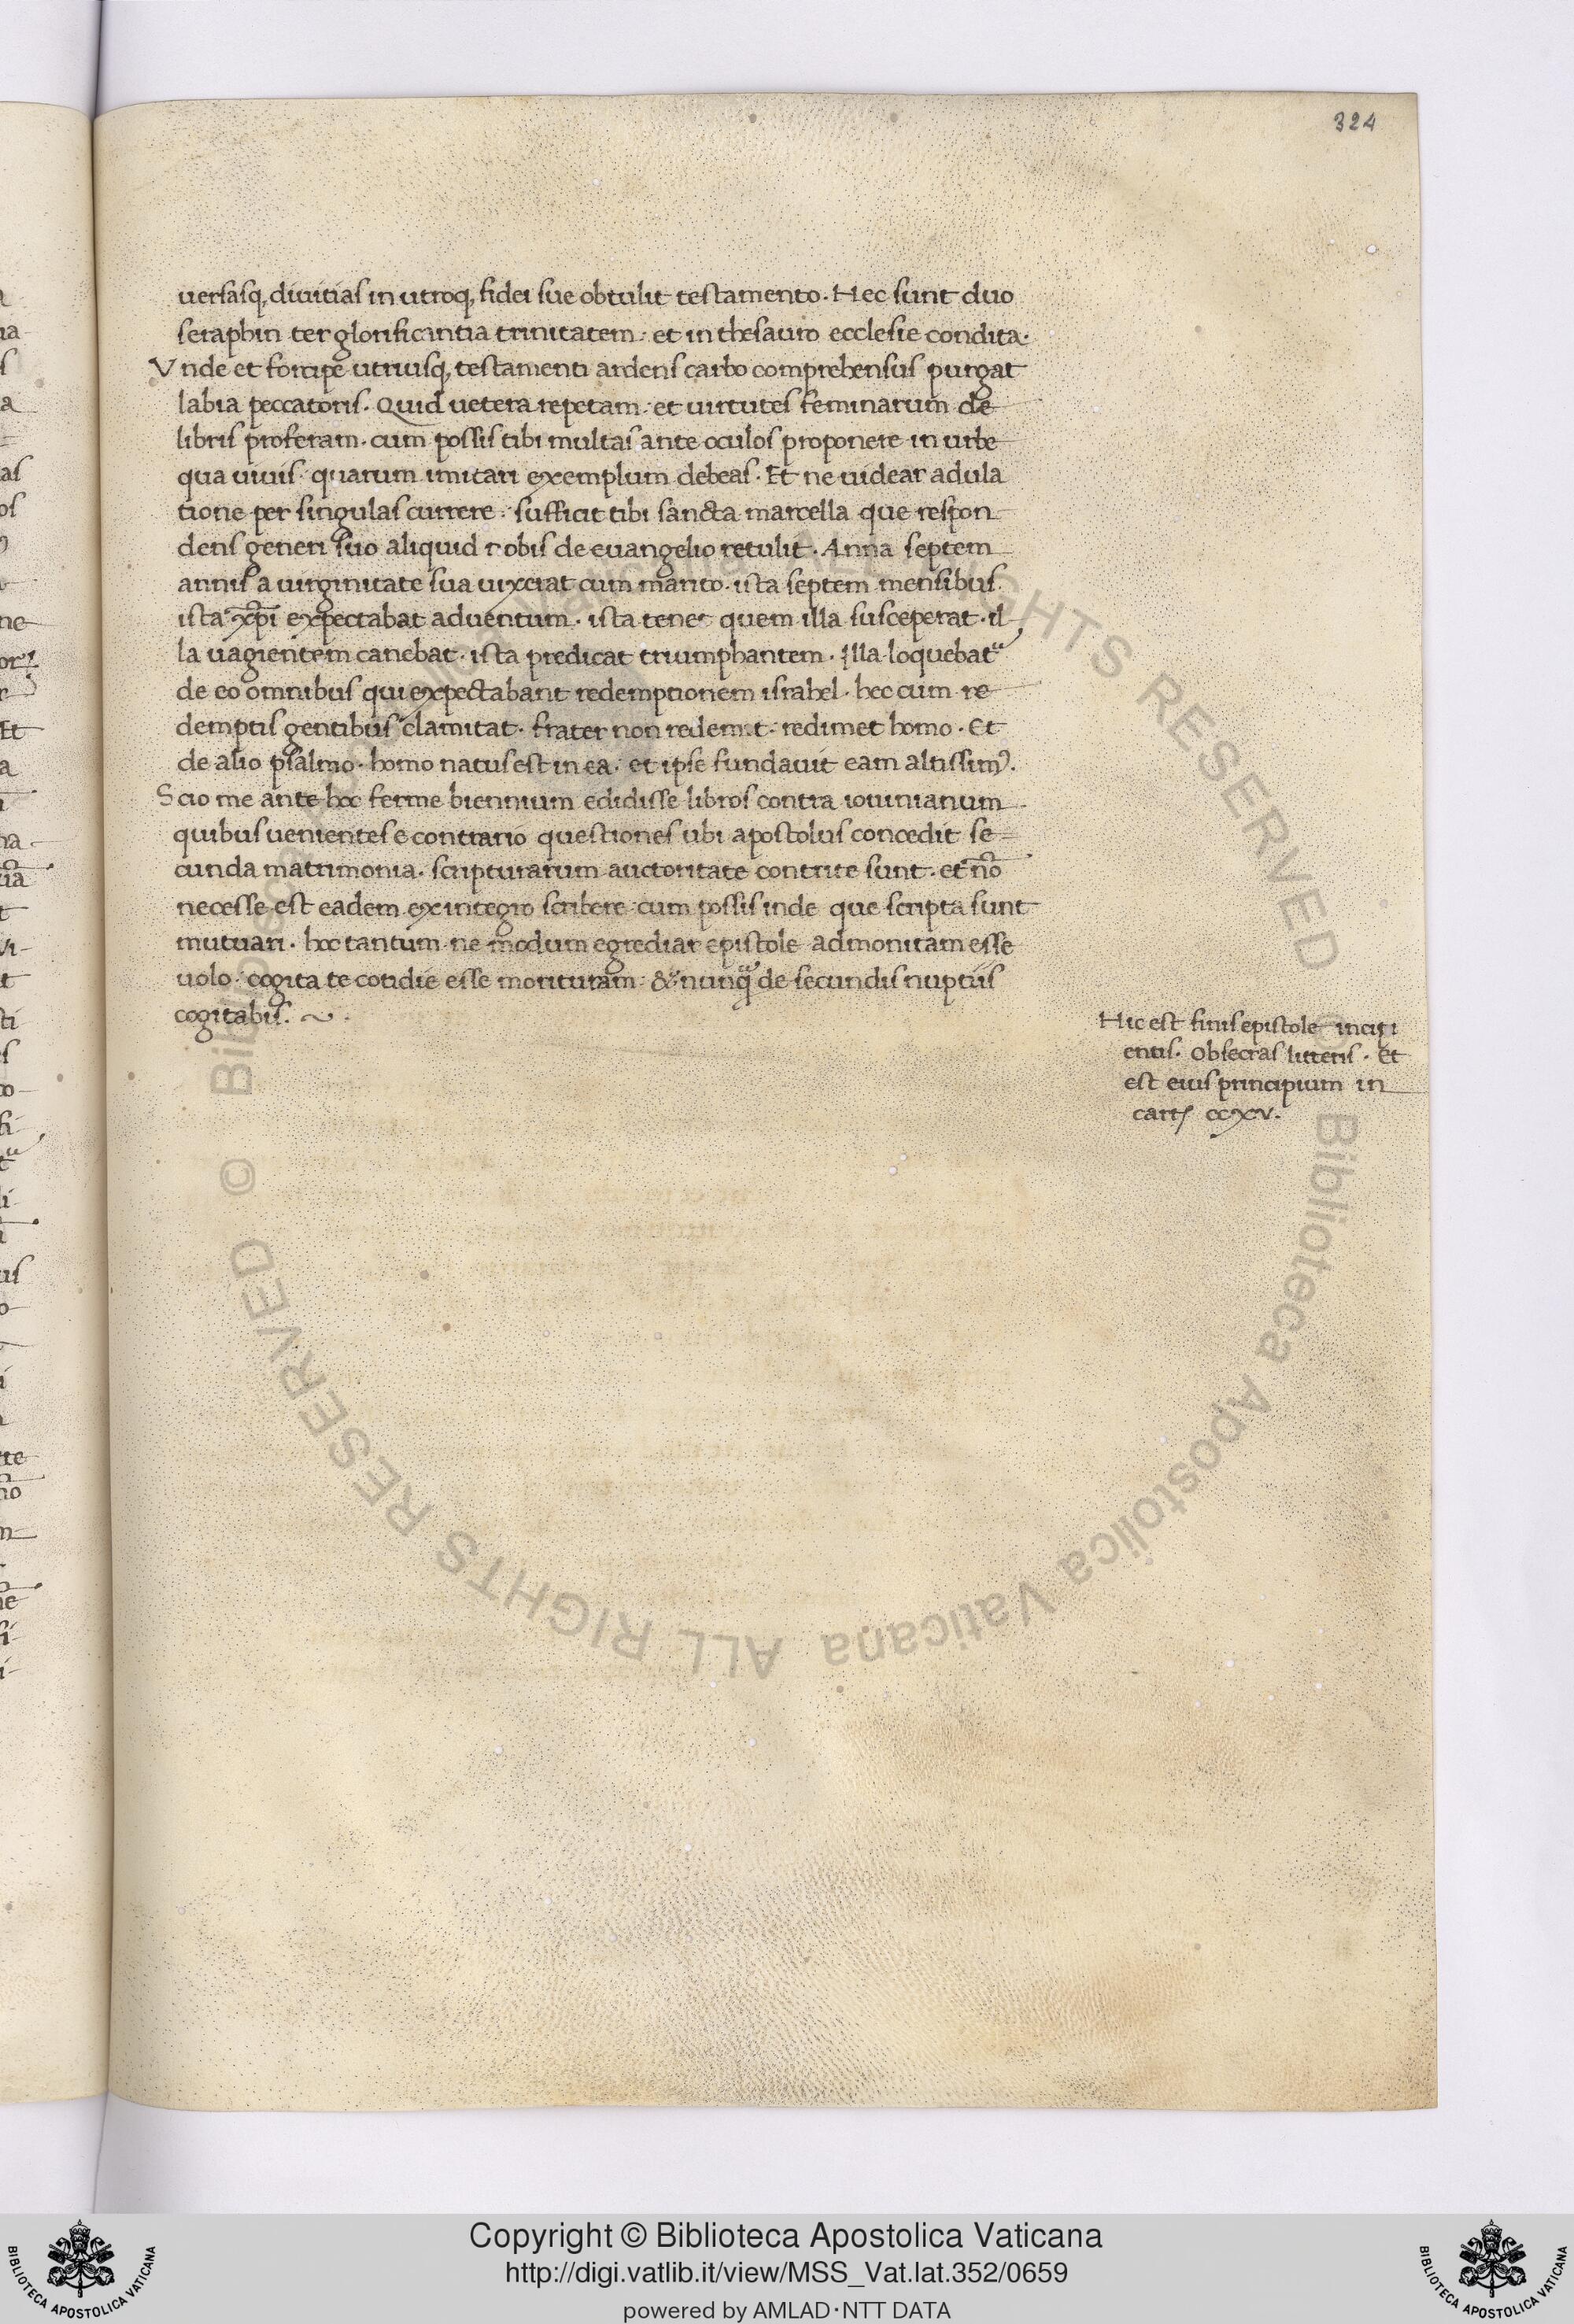 324
uersasq, diuitias in utroq, fidei sue obtulit testamento. Hec sunt duo
seraphin ter glorificantia trinitatem: et in thesauro ecclesie condita.
Vnde et forcipe utriusq, testamenti ardens carbo comprehensus purgat
labia peccatoris. Quid uetera repetam: et uirtutes feminarum de
libris proferam. cum possis tibi multas ante oculos proponere in urbe
qua uiuis. quarum imitari exemplum debeas. Et ne uidear adula
tione per singulas currere: sufficit tibi sancta marcella que respon
dens generi suo aliquid nobis de euangelio retulit. Anna septem
annis a uirginitate sua uixerat cum marito. ista septem mensibus.
ista xp̄i expectabat aduentum. ista tenet quem illa susceperat. il
la uagientem canebat. ista predicat triumphantem. illa loquebat᷑
de eo omnibus qui expectabant redemptionem israhel. hec cum re
demptis gentibus clamitat. frater non redemit: redimet homo. Et
de alio psalmo. homo natus est in ea. et ipse fundauit eam altissimꝰ.
Scio me ante hoc ferme biennium edidisse libros contra iouinianum
quibus uenientes e contrario questiones ubi apostolus concedit se-
cunda matrimonia. scripturarum auctoritate contrite sunt. et nō
necesse est eadem ex integro scribere: cum possis inde que scripta sunt
mutuari. hoc tantum ne modum egrediar epistole admonitam esse
uolo: cogita te cotidie esse morituram: & nunq̃ de secundis nuptiis
cogitabis. ~ .
Hic est finis epistole incipi
entis. Obsecras litteris. Et
est eius principium in
cartꝭ ccxv.
© Biblioteca Apostolica Vaticana ALL RIGHTS RESERVED
© Biblioteca Apostolica Vaticana ALL RIGHTS RESERVED
Copyright © Biblioteca Apostolica Vaticana
http://digi.vatlib.it/view/MSS_Vat.lat.352/0659
powered by AMLAD·NTT DATA
BIBLIOTECA APOSTOLICA VATICANA
BIBLIOTECA APOSTOLICA VATICANA